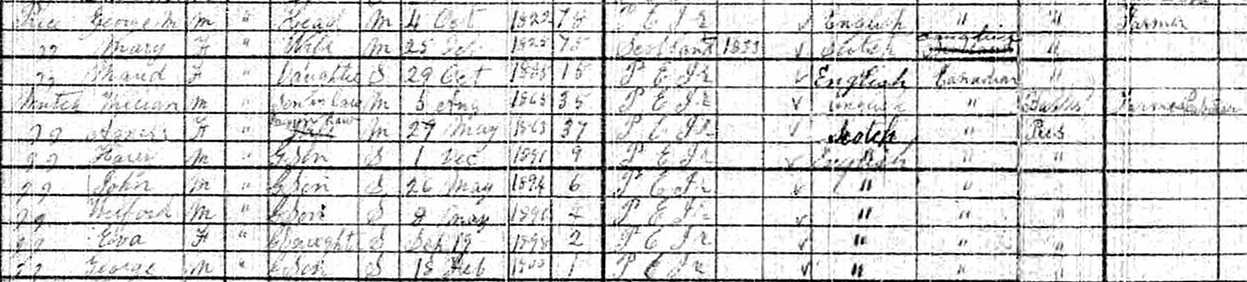 Price George M M " Head M 4 Oct 1822 78 P E Ir ✓ English " " Farmer
" Mary F " Wife M 25 Feb 1825 75 Scotland 1833 ✓ Scotch Canadian "
" Maud F " Daughter S 29 Oct 1885 15 P E Ir ✓ English Canadian "
William M " Son in law M 5 Aug 1865 35 P E Ir ✓ English " Baptist Farm
" F " M 29 May 1863 37 P E Ir ✓ Scotch " Pres
" M " G Son S 1 Dec 1891 9 P E Ir ✓ English " "
" John M " G Son S 26 May 1894 6 P E Ir ✓ " " "
" M " G Son S 8 May 4 P E Ir ✓ " " "
" Eva F " G Daught S Sep 19 1898 2 P E Ir ✓ " " "
" George M " G Son S 18 Feb 1 P E Ir ✓ " " "